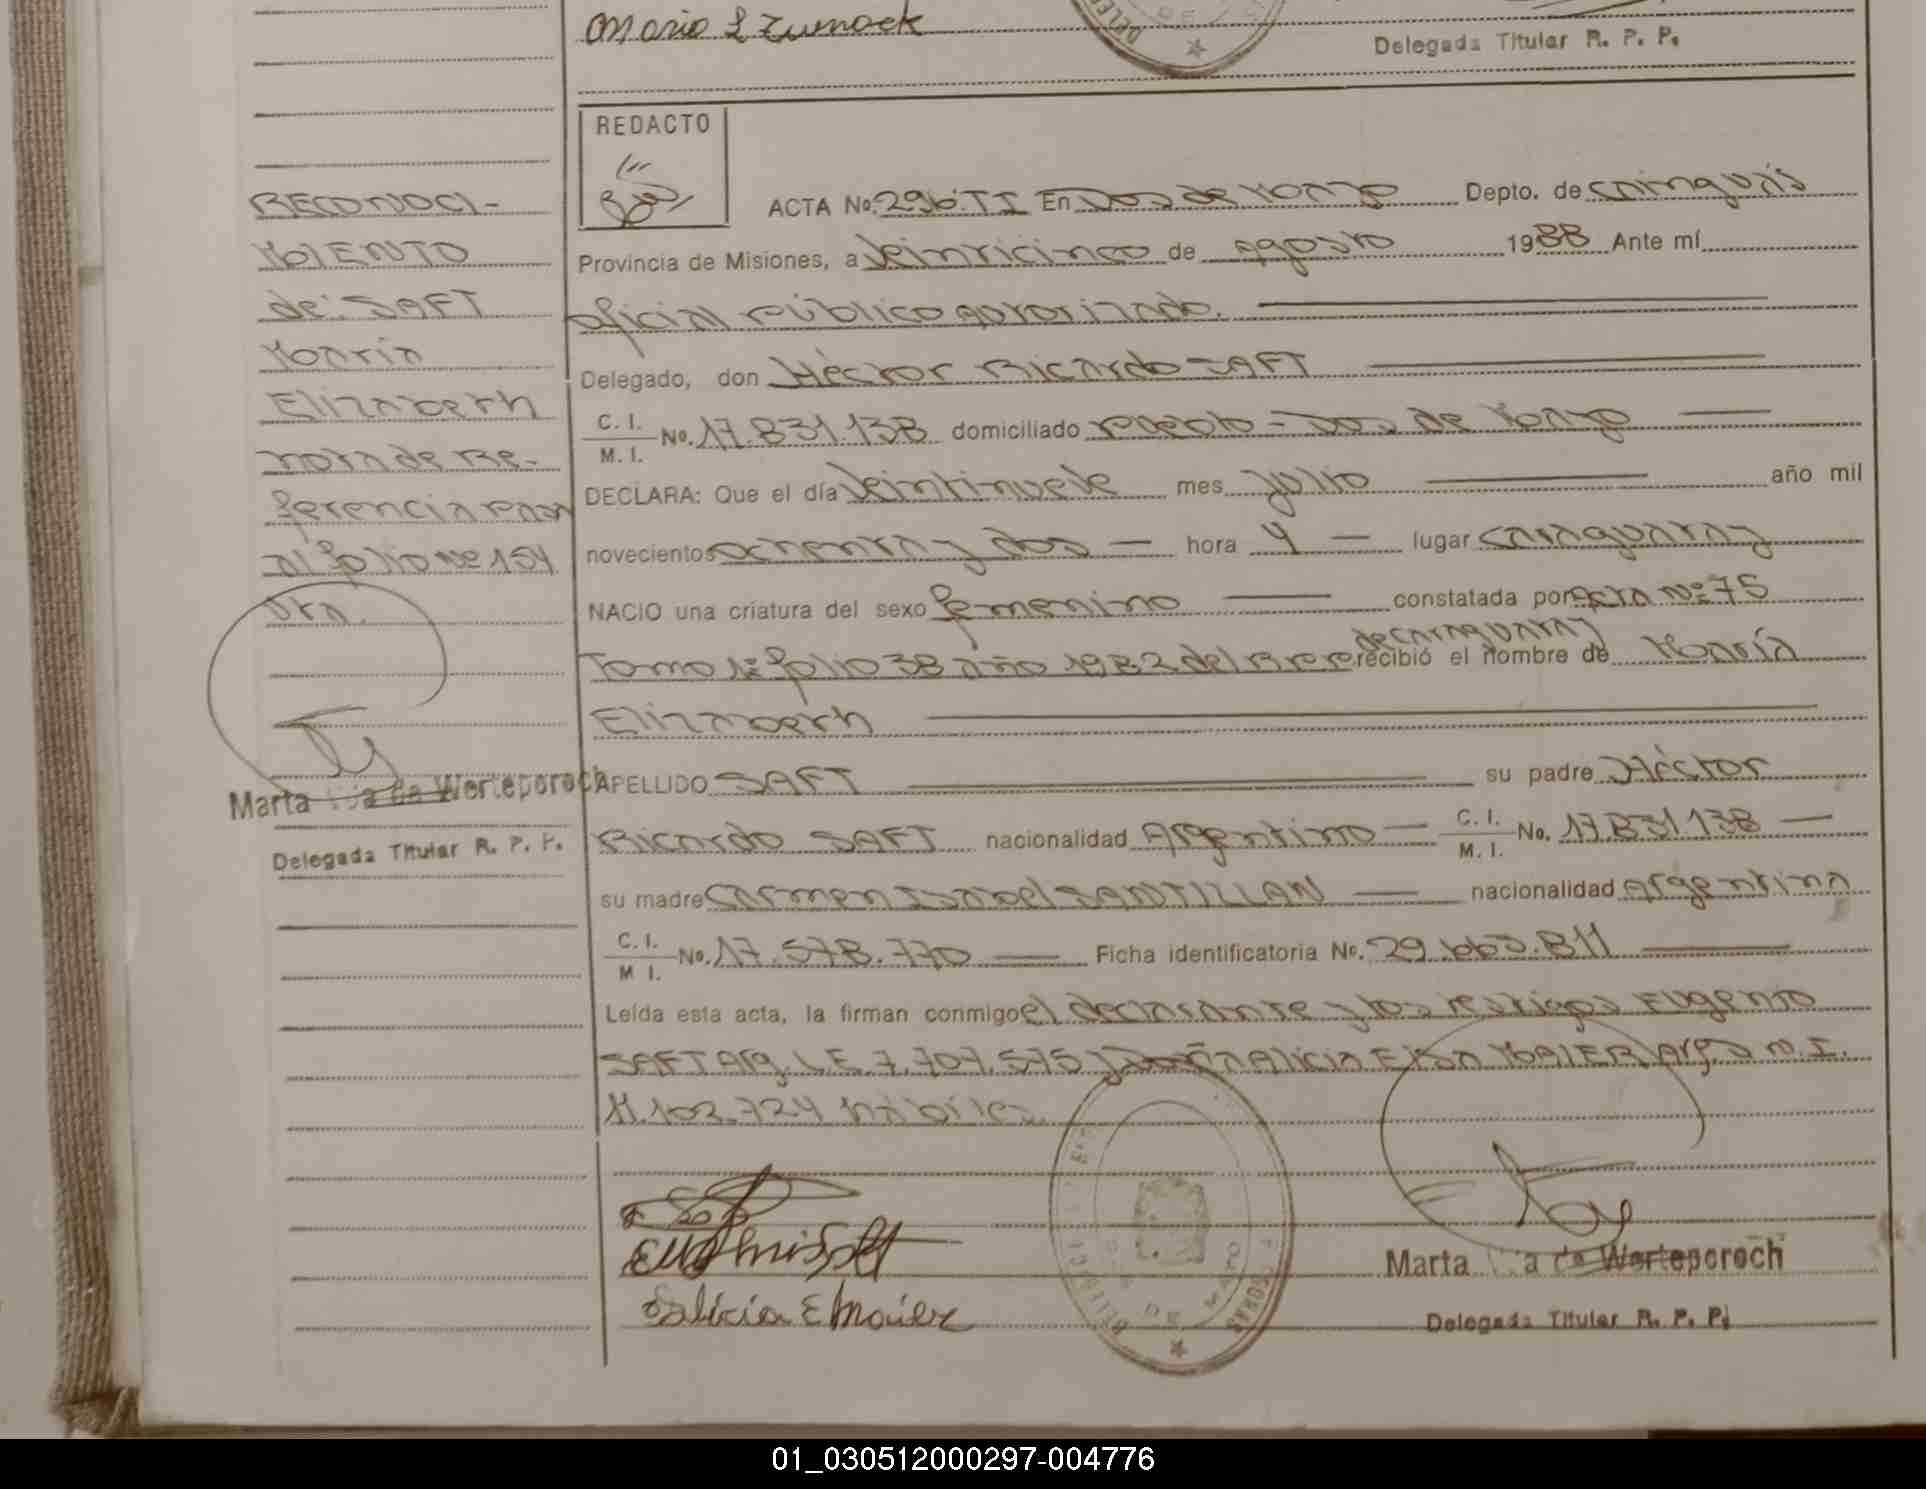 Mario L Zumack
Delegada Titular R. P. P.
REDACTO
ACTA No. 296. TI En Dos de Mayo Depto. de Cainguás
Provincia de Misiones, a Veinticinco de Agosto 1988 Ante mí
oficial público autorizado.
Delegado, don Héctor Ricardo SAFT
C. I.
M. I.
No. 17.831.138 domiciliado Pueblo - Dos de Mayo
DECLARA: Que el día Veintinueve mes Julio año mil
novecientos ochenta y dos — hora 4 — lugar Caraguatay
NACIO una criatura del sexo femenino constatada por Acta Nº 75
de Caraguatay
Tomo 1º folio 38 año 1982 del recibió el nombre de María
Elizabeth
APELLIDO SAFT su padre Héctor
Ricardo SAFT nacionalidad Argentino — C. I.
M. I.
No. 17.831.138 —
su madre Carmen Isabel SANTILLAN — nacionalidad Argentina
C. I.
M I.
No. 17.578.770 — Ficha identificatoria No. 29.663.811
Leída esta acta, la firman conmigo el declarante y los testigos Eugenio
SAFT Arg. L.E. 7.707.575 y Doña Alicia Elsa MAIER Arg. M.I.
11.102.724 hábiles.
Alicia E Maier
DOS DE MAYO
Marta de Werteporoch
Delegada Titular R. P. P.
RECONOCI-
MIENTO
de: SAFT
María
Elizabeth
nota de Re-
ferencia pasa
al folio Nº 154
Vta.
Marta de Werteporoch
Delegada Titular R. P. P.
01_030512000297-004776